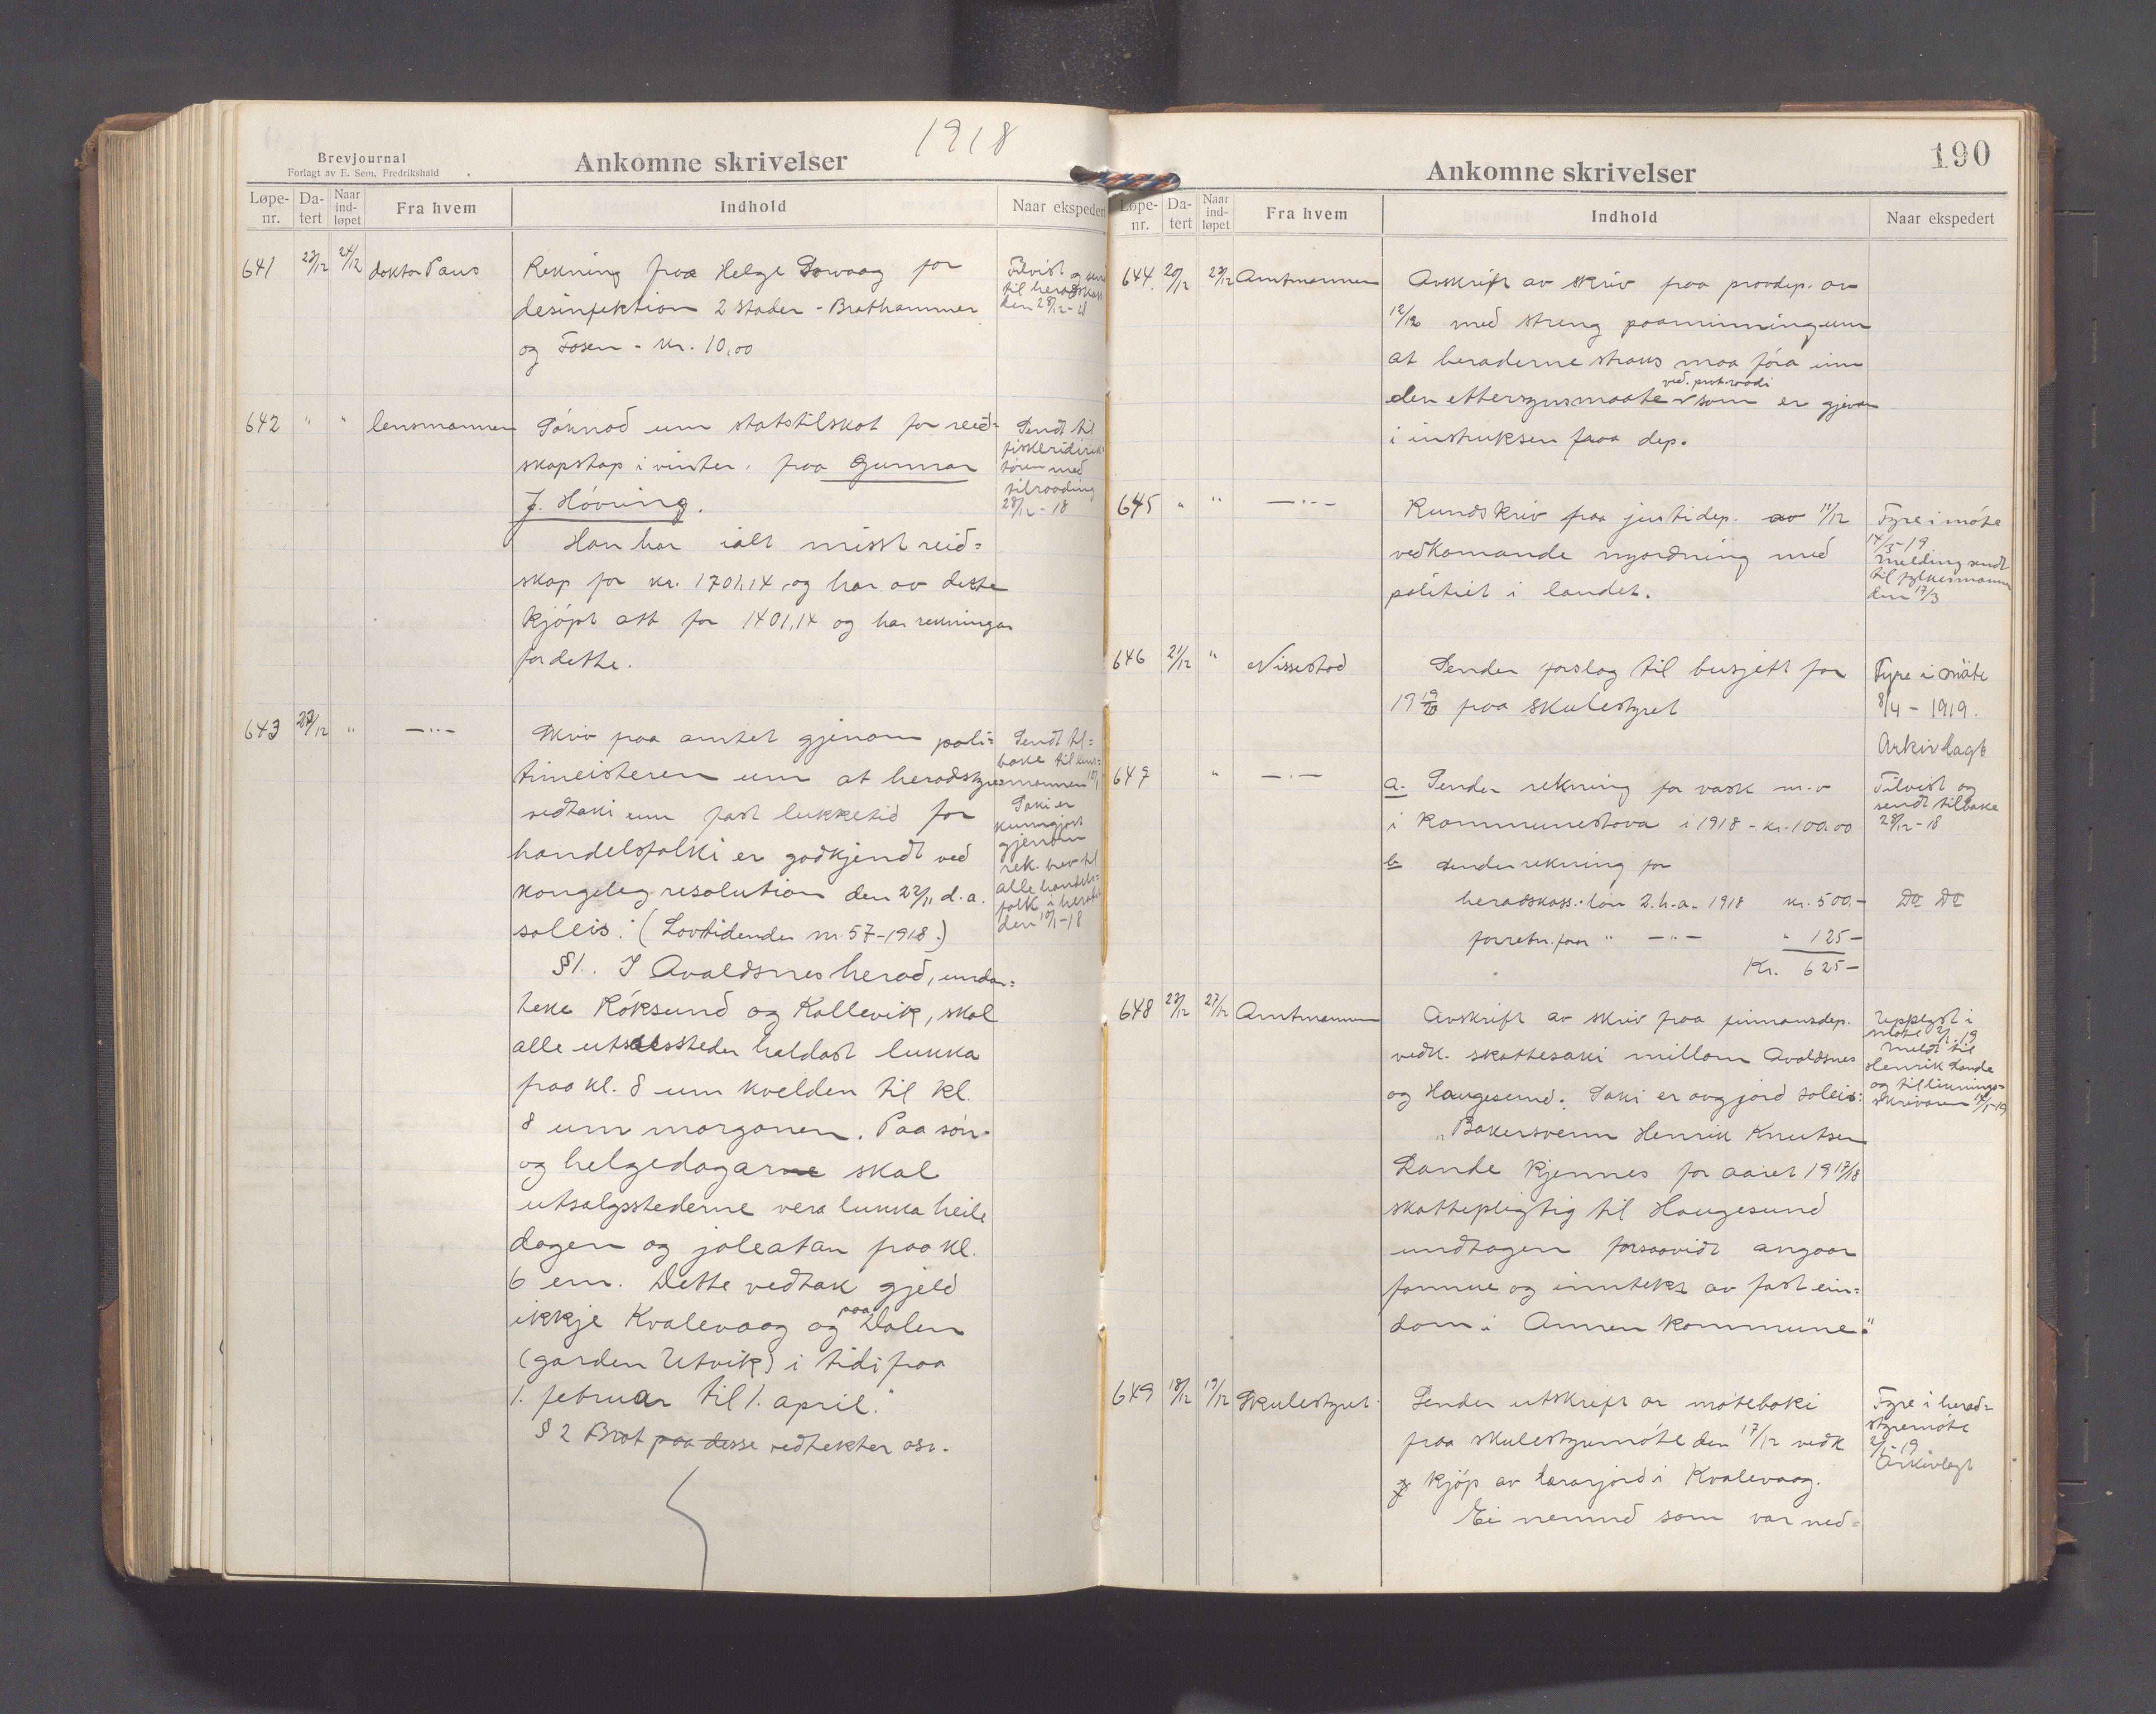 1918
Brevjournal
Forlagt av E. Sem, Fredrikshald
Ankomne skrivelser
Løpe-nr. Da-tert Naar ind-løpet Fra hvem Indhold Naar ekspedert
641 23/12 24/12 doktor Paus Rekning fraa Helge Dovaag for
desinfektion 2 stader - Brathammer
og Fosen - kr. 10,00
Tilvist og
til heradskass
den 28/12-18
642 " " lensmannen Søknad um statstilskot for reid=
skapstap i vinter, fraa Gunnar
J. Høvring.
Han har ialt misst reid=
skap for kr. 1701,14, og har av dette
kjøpt att for 1401,14 og har rekningar
for dette.
Sendt til
fiskeridirek-
tøren med
tilraading
28/12-18
643 23/12 " —"—
Skriv fraa amtet gjenom poli=
timeisteren um at heradstyre=
vedtaki um fast lukketid for
handelsfolki er godkjendt ved
kongeleg resolution den 22/11 d.a.
soleis: (Lovtidender nr. 57-1918.)
§1. I Avaldsnes herad, undan=
teke Røksund og Kollevik, skal
alle utsalssteder haldast lukka
fraa kl. 8 um kvelden til kl.
8 um morgonen. Paa søn-
og helgedagarne skal
utsalgsstederne vera lukka heile
dagen og joleatan fraa kl.
6 em. Dette vedtak gjeld
ikkje Kvalevaag og paa Dalen
(garden Utvik) i tidi fraa
1. februar til 1. april."
§ 2 Brot paa desse vedtekter osv.
Sendt til=
bake til lens=
mannen 10/1
Saki er
kunngjort
gjenom
rek. brev til
alle handels=
folk i herad
den 10/1-18
190
Ankomne skrivelser
Løpe-nr. Da-tert Naar ind-løpet Fra hvem Indhold Naar ekspedert
644. 20/12 23/12 Amtmannen Avskrift av skriv fraa provdep. av
12/12 med streng paaminning um
at heraderne straks maa føra inn
den ettersynsmaate ved. prov.raadi som er gjeven
i instruksen fraa dep.
645 " " —"—
Rundskriv fraa justidep. av 11/12
vedkomande nyordning med
politiet i landet.
Fyre i møte
14/3-19
Melding sendt
til fylkesmannen
den 17/3
646 21/12 " Nissestad Sender forslag til busjett for
19 19/20 fraa skulestyret
Fyre i møte
8/4 - 1919.
Arkivlagt
647 " —"—
a. Sender rekning for vask m.v
i kommunestova i 1918 - kr. 100.00
Tilvist og
sendt tilbake
28/12-18
b sender rekning for
heradskass. løn 2. h.a. 1918 kr. 500.-
Do Do
forretn.førar " —"— " 125-
Kr. 625-
648 23/12 27/12 Amtmannen Avskrift av skriv fraa finnansdep.
vedk. skattesaki millom Avaldsnes
og Haugesund. Saki er avgjord soleis:
"Bakersvenn Henrik Knutsen
Lande kjennes for aaret 1917/18
skattepligtig til Haugesund
undtagen forsaavidt angaar
formue og inntekt av fast ein=
dom i Annen kommune."
Upplyst i
møte 2/1-19
Meldt til
Henrik Lande
og tillikninges=
skrivaren 14/1-19
649 18/12 19/12 Skulestyret. Sender utskrift av møteboki
fraa skulestyremøte den 17/12 vedk
kjøp av lærarjord i Kvalevaag.
Ei nemnd som var ned=
Fyre i herad=
styremøte
2/1-19
Arkivlagt